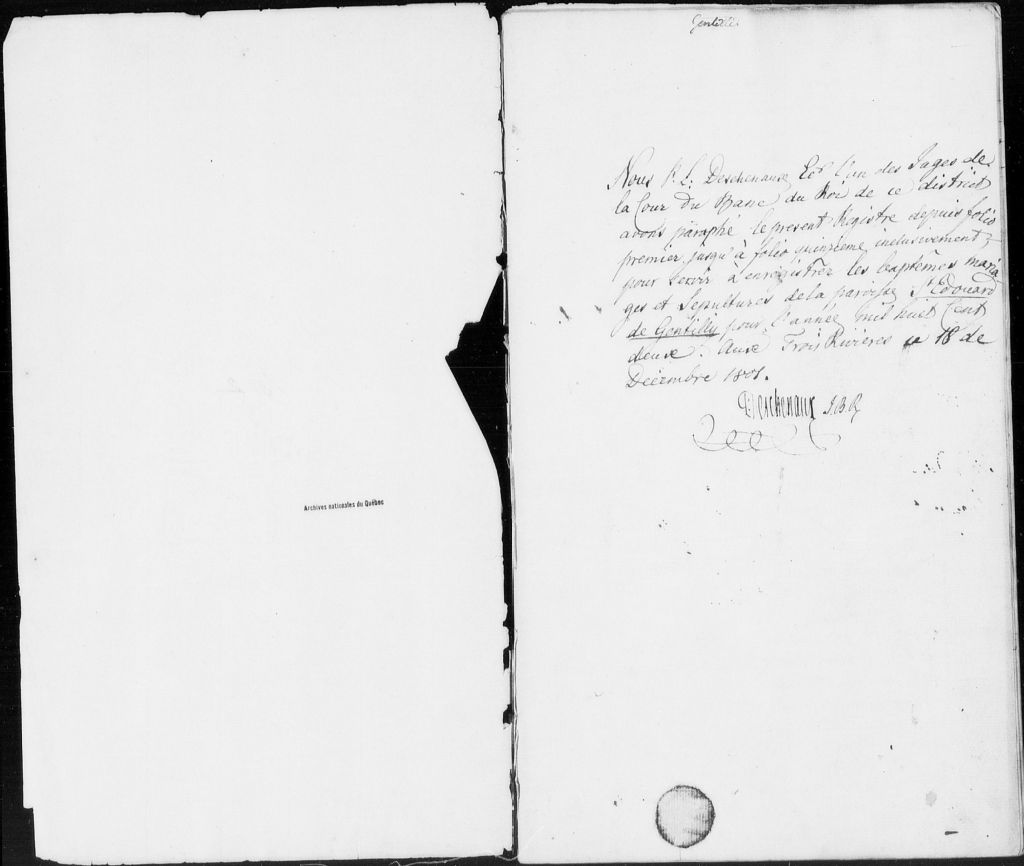 Gentilli
Nous P. L: Deschenaux Ecr l'un des Juges de
la Cour du Banc du Roi de ce district
avons paraphé le present Registre depuis folio
premier jusqu'à folio quinzieme inclusivement
pour servir à enregistrer les baptêmes maria
ges et Sepultures de la paroisse St Edouard
de Gentilly pour l'année mil huit Cent
deux. Aux Trois Rivieres ce 18 de
Décembre 1801.
Deschenaux J.B.R
Archives nationales du Québec